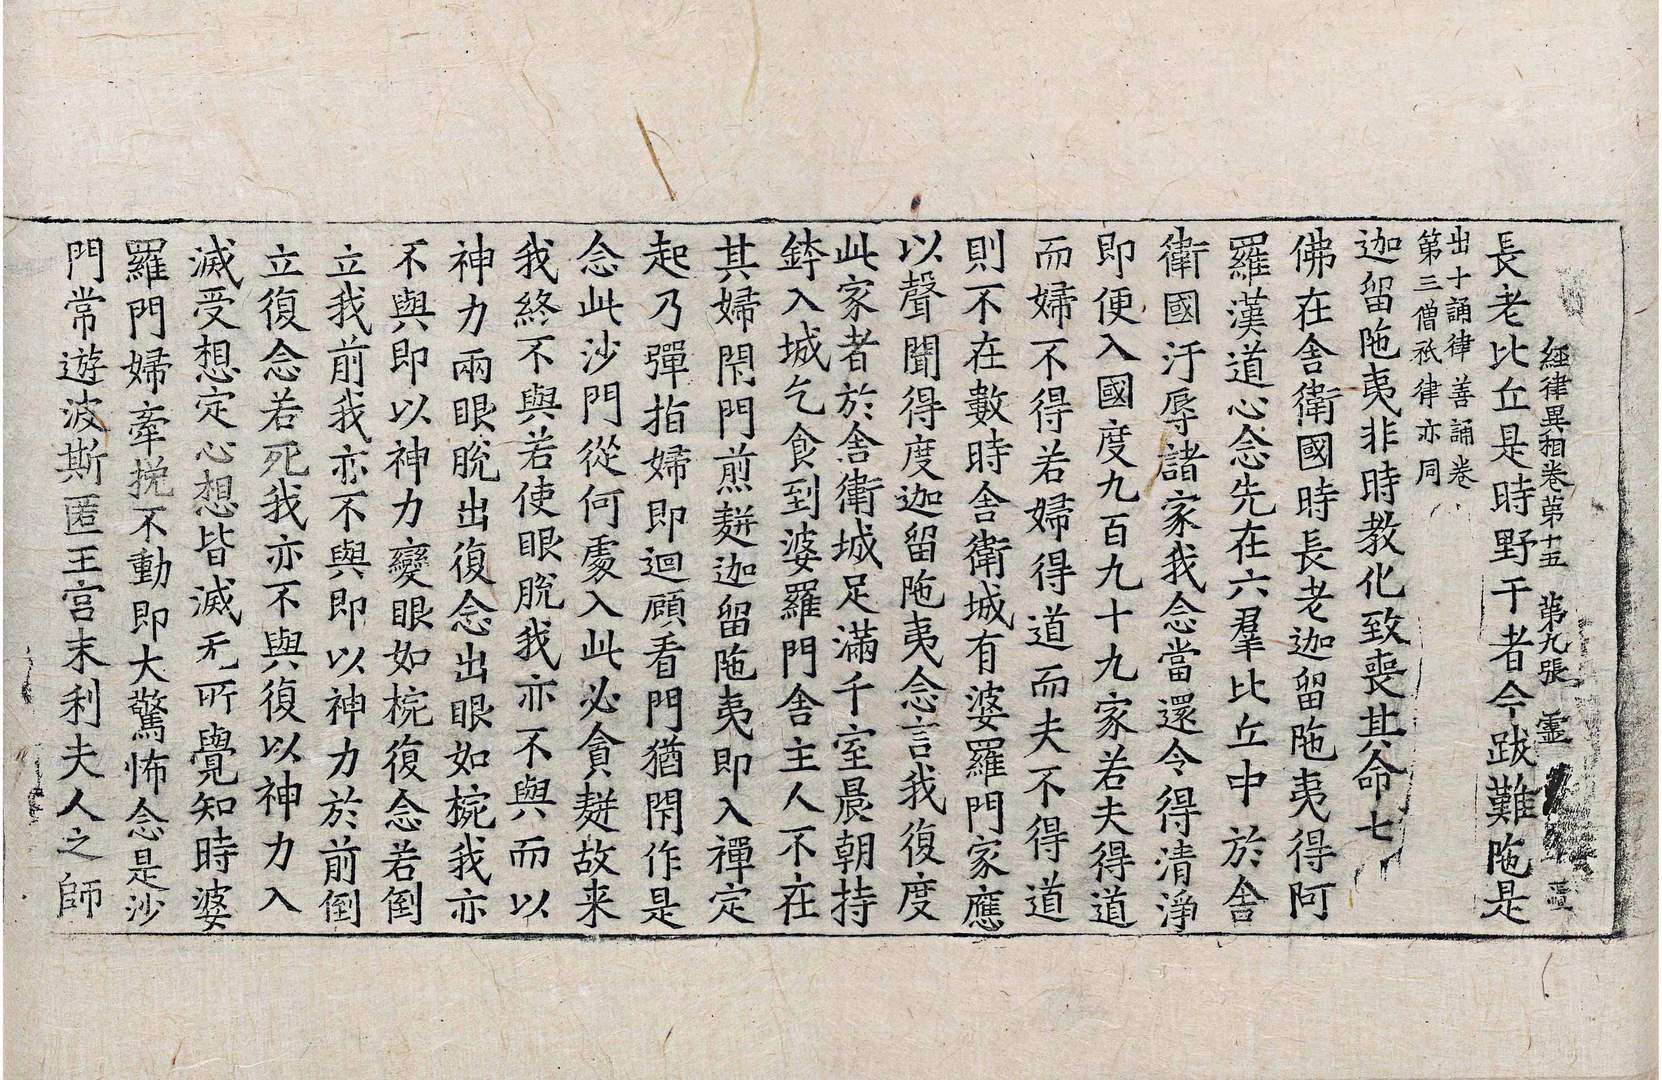 經律異相卷第十五　第九張　靈
長老比丘是時野干者今跋難陁是
出十誦律善誦卷
第三僧祇律亦同
迦留陁夷非時教化致喪其命七
佛在舍衛國時長老迦留陁夷得阿
羅漢道心念先在六羣比丘中於舍
衛國汙辱諸家我念當還令得清淨
即便入國度九百九十九家若夫得道
而婦不得若婦得道而夫不得道
則不在數時舍衛城有婆羅門家應
以聲聞得度迦留陁夷念言我復度
此家者於舍衛城足滿千室晨朝持
鉢入城乞食到婆羅門舍主人不在
其婦閇門煎䴵迦留陁夷即入禪定
起乃彈指婦即迴顧看門猶閇作是
念此沙門從何處入此必貪䴵故来
我終不與若使眼脫我亦不與而以
神力兩眼脫出復念出眼如椀我亦
不與即以神力變眼如椀復念若倒
立我前我亦不與即以神力於前倒
立復念若死我亦不與復以神力入
滅受想定心想皆滅无所覺知時婆
羅門婦牽挽不動即大驚怖念是沙
門常遊波斯匿王宮末利夫人之師